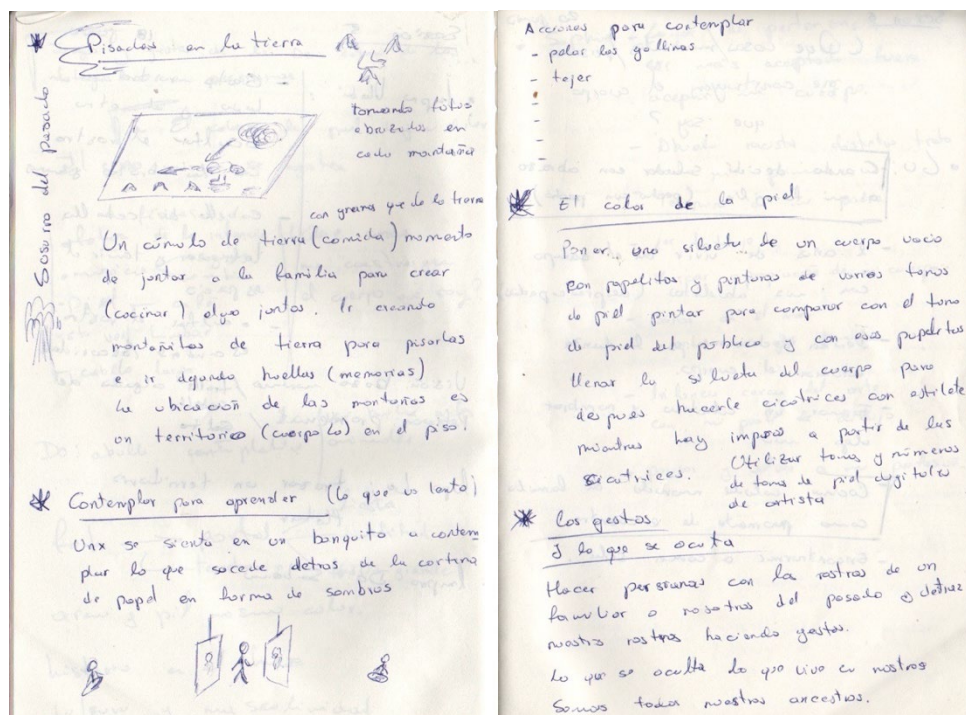 Pisadas en la tierra
Susurro del pasado
tomando fotos
abrazados en
cada montaña
con granos y de la tierra
Un cúmulo de tierra (comida) momento
de juntar a la familia para crear
(cocinar) algo juntos. Ir creando
montañitas de tierra para pisarlas
e ir dejando huellas (memorias)
La ubicación de las montañas es
un territorio (cuerpo la) en el piso.
Contemplar para aprender (lo que es lento)
Unx se sienta en un banquito a contem
plar lo que sucede detras de la cortina
de papel en forma de sombras
Acciones para contemplar
- pelar las gallinas
- tejer
-
-
-
-
El color de la piel
Poner una silueta de un cuerpo vacio
con papelitos y pinturas de varios tonos
de piel pintar para comparar con el tono
de piel del publico y con esos papelitos
llenar la silueta del cuerpo para
despues hacerle cicatrices con estilete
mientras hay impros a partir de las
cicatrices. Utilizar tonos y números
de tonos de piel digitales
de artista
Los gestos
y lo que se oculta
Hacer persianas con los rostros de un
familiar o nosotros del pasado y detras
nuestros rostros haciendo gestos.
Lo que se oculta lo que vive en nosotros
Somos todos nuestros ancestros.